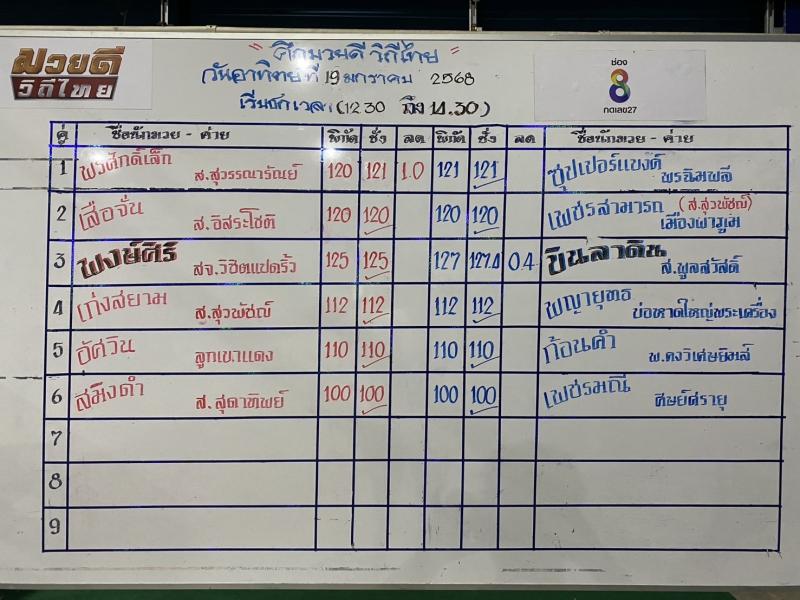 มวยดี
วิถีไทย
" ศึกมวยดี วิถีไทย "
วันอาทิตย์ที่ 19 มกราคม 2568
เริ่มชกเวลา (12.30 ถึง 14.30)
ช่อง
8
กดเลข27
คู่ ชื่อนักมวย - ค่าย พิกัด ชั่ง ลด พิกัด ชั่ง ลด ชื่อนักมวย - ค่าย
1 พรศักดิ์เล็ก ส.สุวรรณารัณย์ 120 121 1.0 121 121 ซุปเปอร์แบงค์ พรฉิมพลี
2 เสือจั่น ส.อิสระโชติ 120 120 120 120 เพชรสามารถ (ส.สุวพัชญ์) เมืองผาภูม
3 พงษ์ศิริ สจ.วิชิตแปดริ้ว 125 125 127 127.4 0.4 ขินลาดิน ส.พูลสวัสดิ์
4 เก่งสยาม ส.สุวพัชญ์ 112 112 112 112 พญายุทธ บ่อหาดใหญ่พระเครื่อง
5 อัศวิน ลูกเขาแดง 110 110 110 110 ก้อนคำ พ.คงวิเศษยิมส์
6 สมิงดำ ส.สุดาทิพย์ 100 100 100 100 เพชรมณี ศิษย์ศรายุ
7
8
9